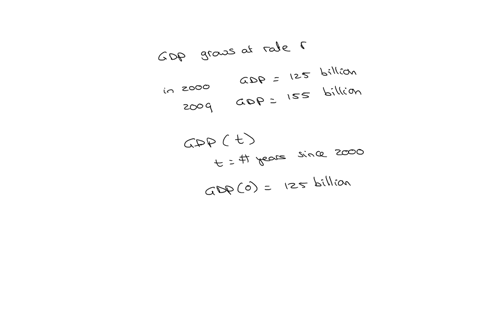 GDP grows at rate r
in 2000 GDP = 125 billion
2009 GDP = 155 billion
GDP(t)
t = # years since 2000
GDP(0) = 125 billion